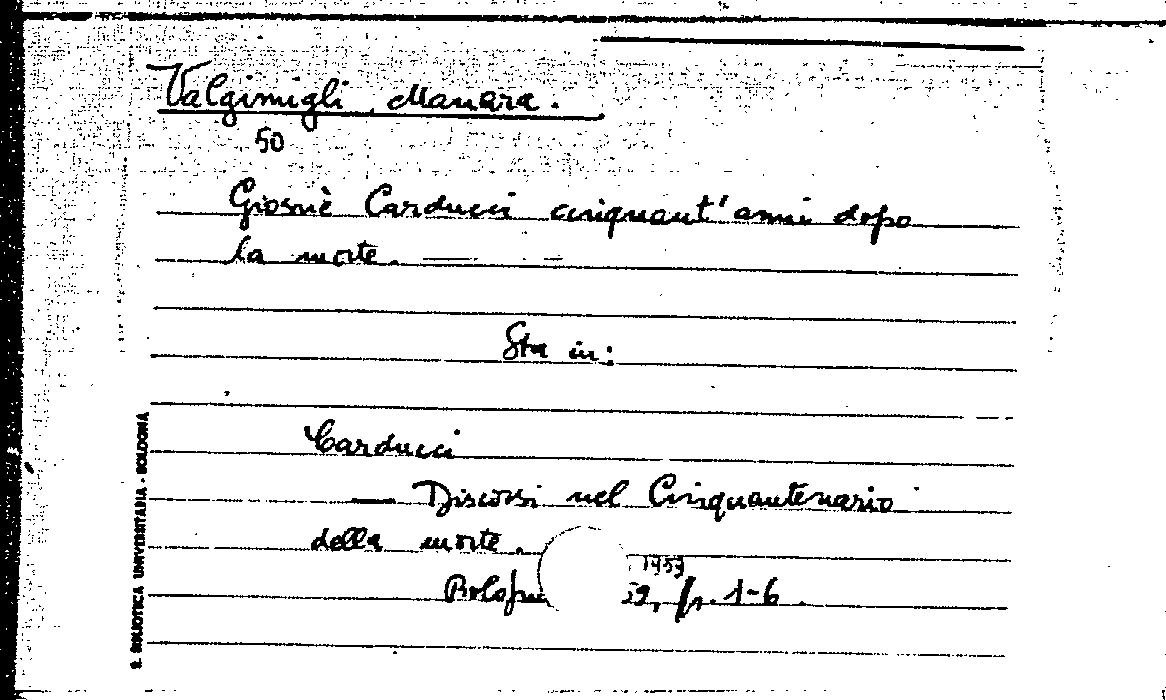 Valgimigli, Manara.
50
Giosuè Carducci cinquant'anni dopo
la morte. —
Sta in:
Carducci
— Discorsi nel Cinquantenario
della morte.
1959
p. 1-6.
S. BIBLIOTECA UNIVERSITARIA - BOLOGNA